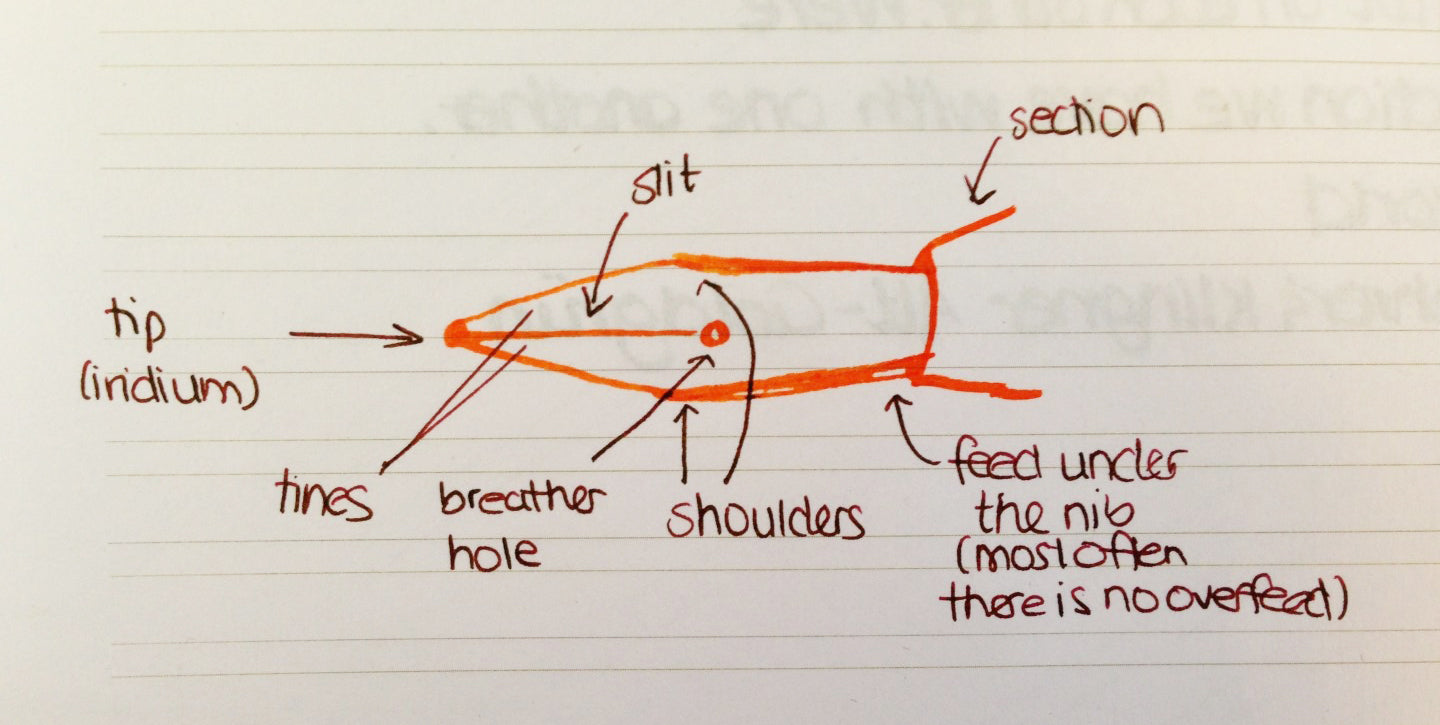 section
slit
tip
(iridium)
tines
breather
hole
shoulders
feed under
the nib
(most often
there is no overfeed)